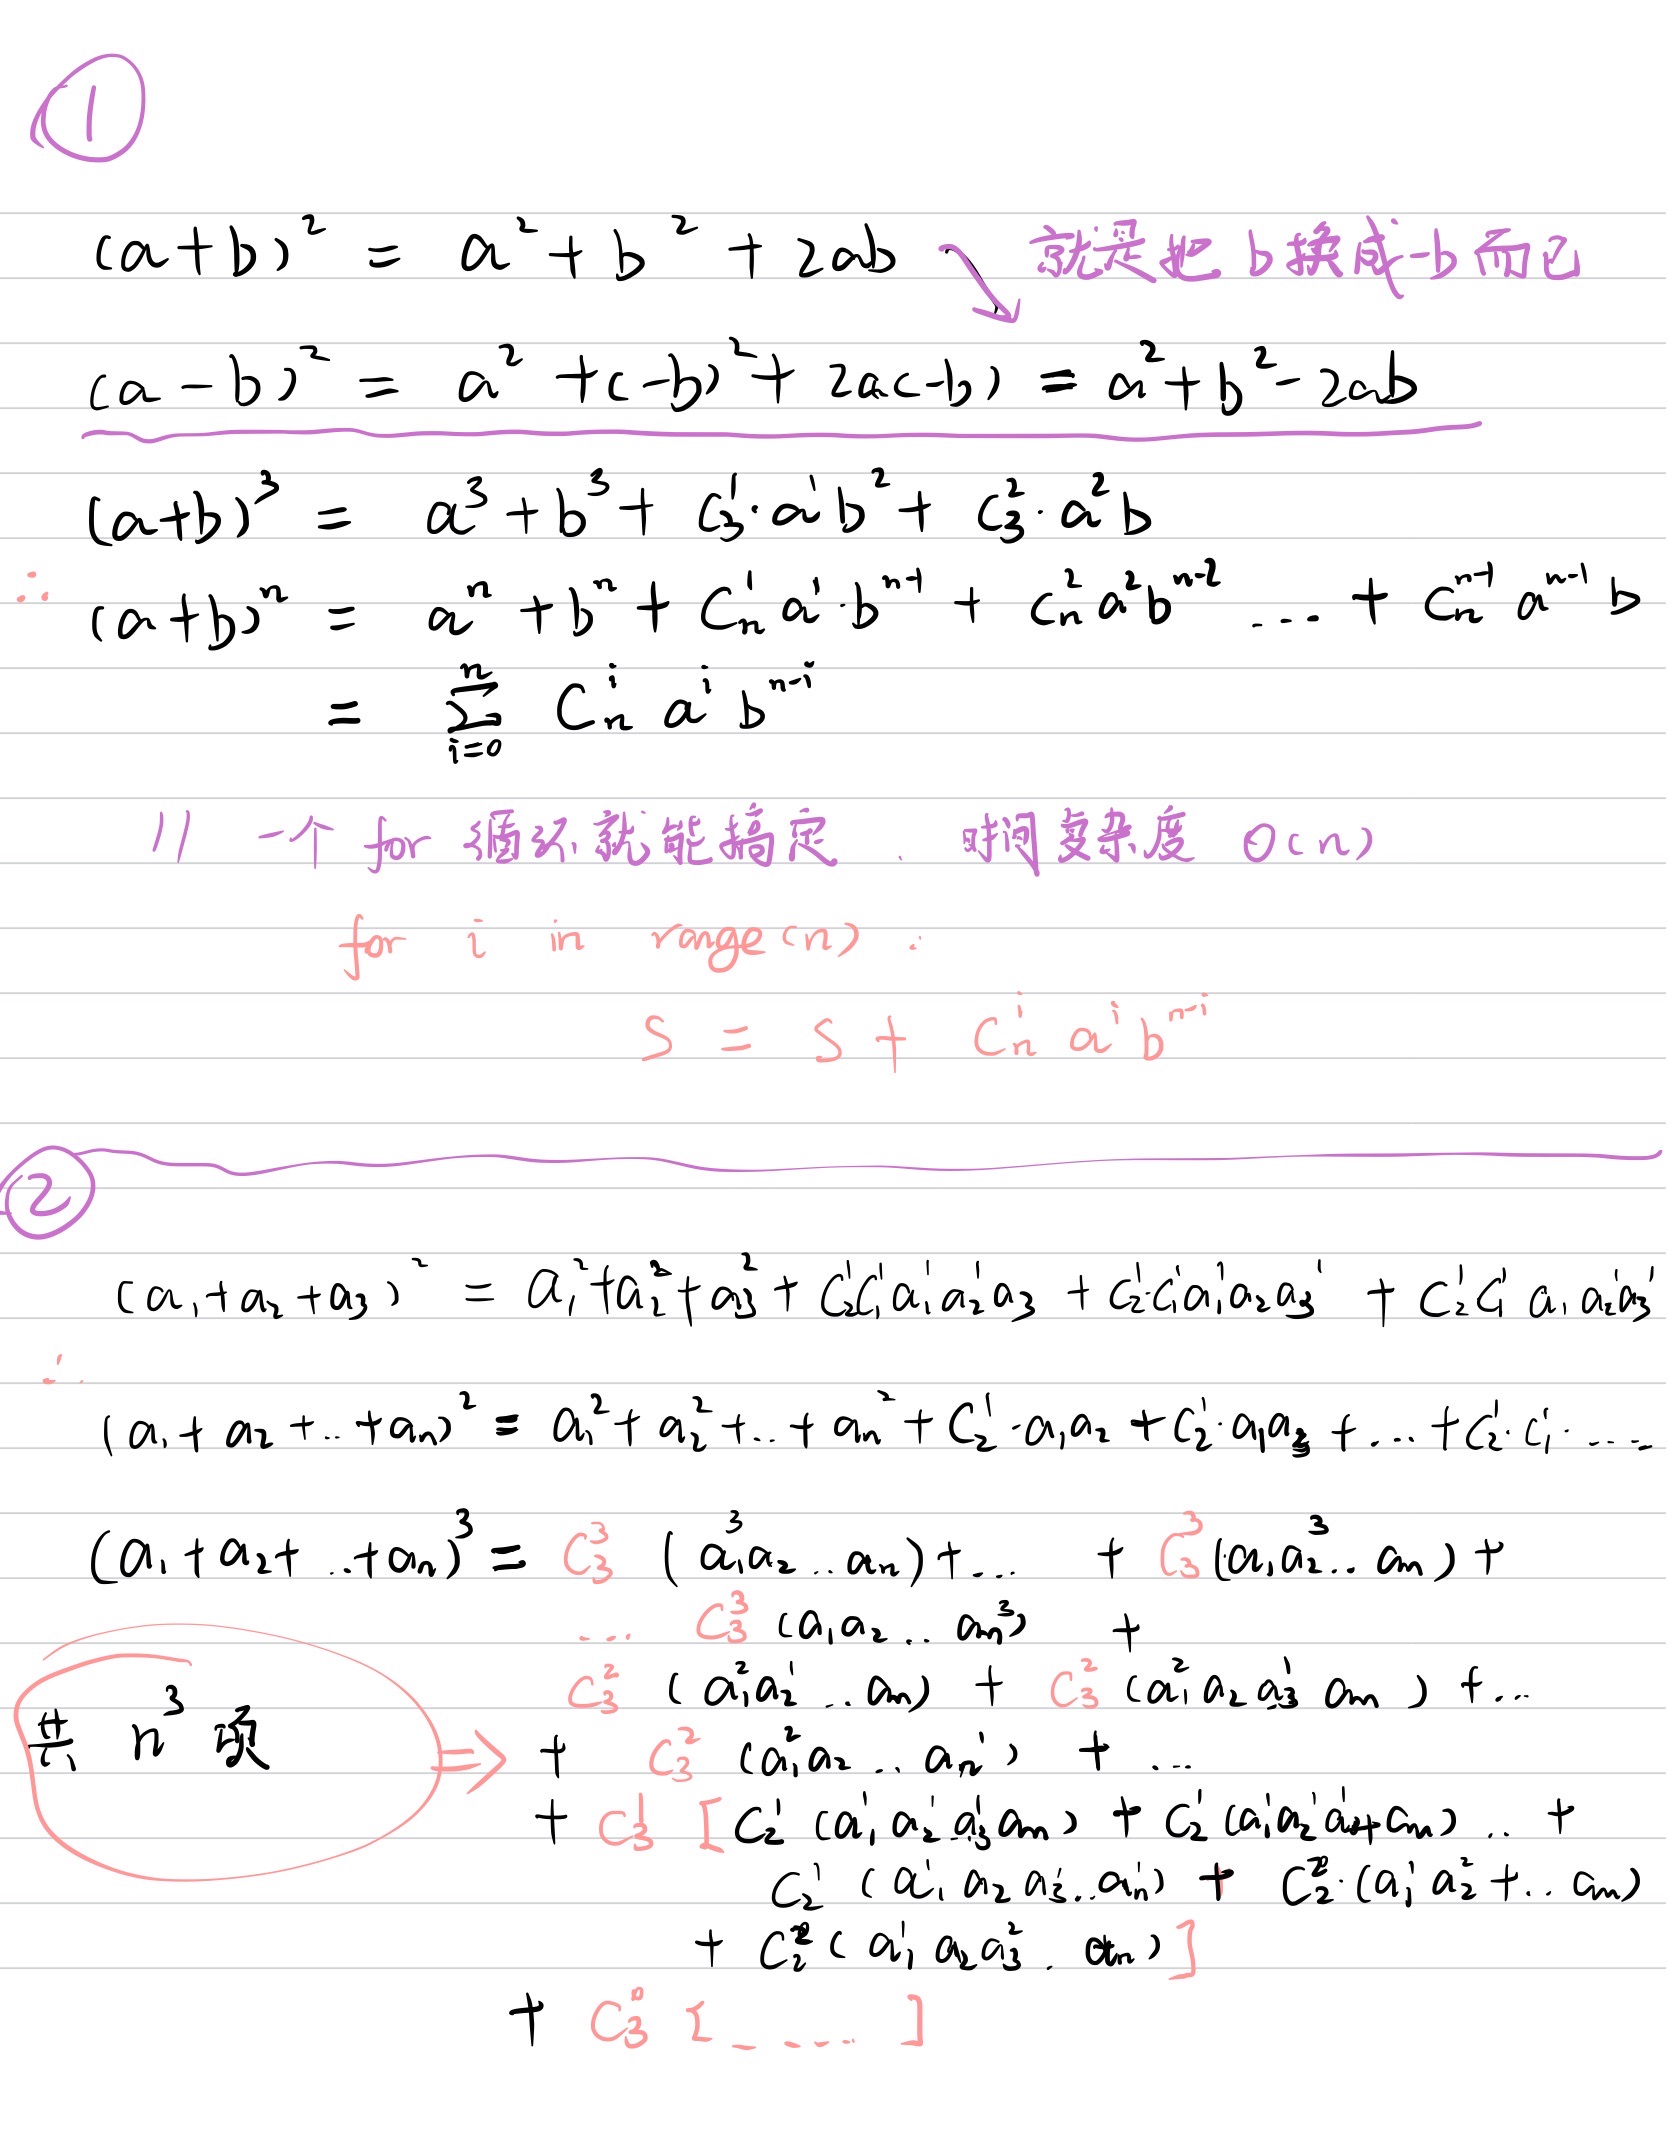 ①
(a+b)² = a² + b² + 2ab 就是把 b 换成 -b 而已
(a-b)² = a² + (-b)² + 2a(-b) = a² + b² - 2ab
(a+b)³ = a³ + b³ + C₃¹·a¹b² + C₃²·a²b
∴ (a+b)ⁿ = aⁿ + bⁿ + Cₙ¹a¹·bⁿ⁻¹ + Cₙ²a²bⁿ⁻² ... + Cₙⁿ⁻¹aⁿ⁻¹b
= ∑ᵢ₌₀ⁿ Cₙⁱ aⁱ bⁿ⁻ⁱ
// 一个 for 循环就能搞定. 时间复杂度 O(n)
for i in range(n):
S = S + Cₙⁱ aⁱ bⁿ⁻ⁱ
②
(a₁+a₂+a₃)² = a₁²+a₂²+a₃² + C₂¹C₁¹a₁¹a₂¹a₃ + C₂¹·C₁¹a₁¹a₂a₃¹ + C₂¹C₁¹ a₁a₂¹a₃¹
∴
(a₁+a₂+..+aₙ)² = a₁²+a₂²+..+aₙ² + C₂¹·a₁a₂ + C₂¹·a₁a₃ + ... + C₂¹·C₁¹·....
(a₁+a₂+..+aₙ)³ = C₃³ (a₁³a₂..aₙ)+... + C₃³(a₁a₂³..aₙ) +
... C₃³ (a₁a₂..aₙ³) +
C₃² (a₁²a₂¹..aₙ) + C₃² (a₁²a₂a₃¹aₙ) + ...
共 n³ 项 ⇒ + C₃² (a₁²a₂..aₙ¹) + ...
+ C₃¹ [C₂¹ (a₁¹a₂¹a₃¹aₙ) + C₂¹ (a₁¹a₂¹a₄¹aₙ) .. +
C₂¹ (a₁¹a₂a₃¹..aₙ¹) + C₂²·(a₁¹a₂²+..aₙ)
+ C₂² (a₁¹a₂a₃².aₙ)]
+ C₃⁰ [_....]